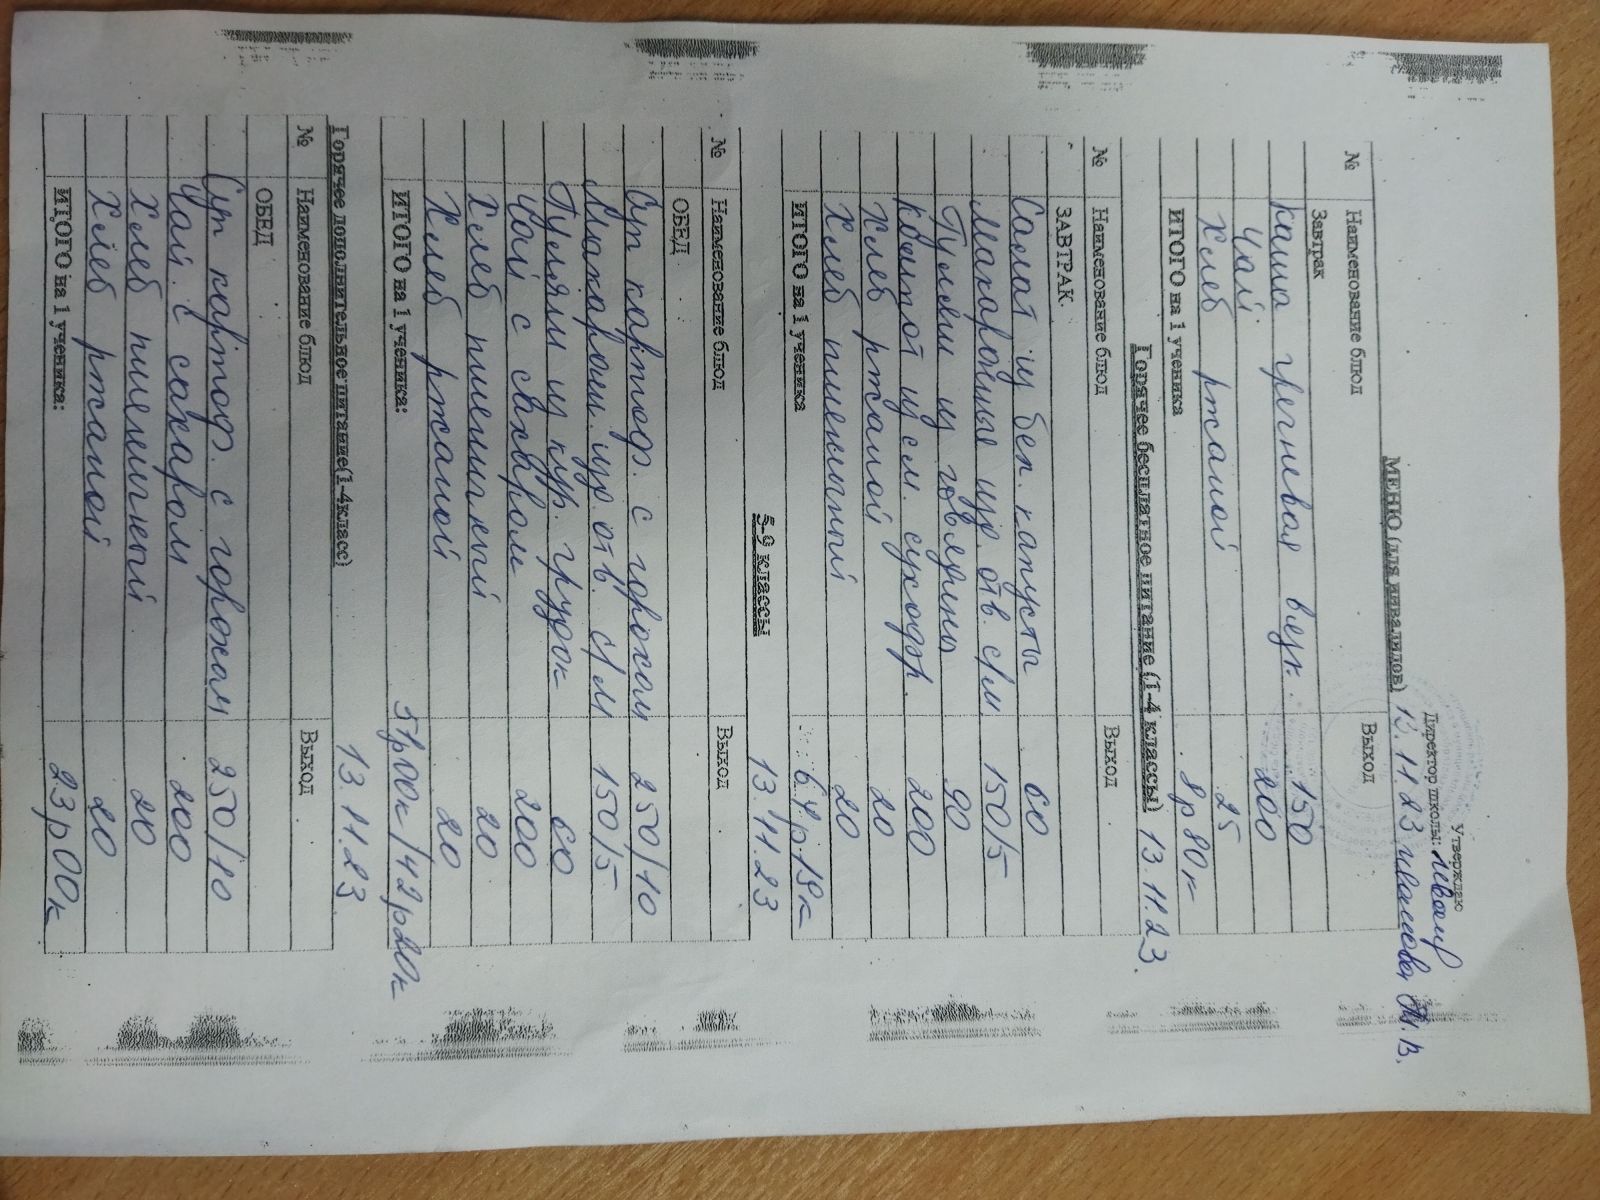 Утверждаю
Директор школы:
МЕНЮ (для инвалидов) 13.11.23
№ Наименование блюд Выход
Завтрак
Каша гречневая вязк. 150
Чай 200
Хлеб ржаной 25
ИТОГО на 1 ученика 8р80к
Горячее бесплатное питание (1-4 классы) 13.11.23.
№ Наименование блюд Выход
ЗАВТРАК.
Салат из бел. капусты 60
Макаронные изд. отв. с/м 150/5
Гуляш из говядины 90
Компот из см. сухофр. 200
Хлеб ржаной 20
Хлеб пшеничный 20
ИТОГО на 1 ученика 64р19к
5-9 классы 13.11.23
№ Наименование блюд Выход
ОБЕД
Суп картоф. с горохом 250/10
Макарон. изд. отв. с/м 150/5
Гуляш из кур. грудок 60
Чай с сахаром 200
Хлеб пшеничный 20
Хлеб ржаной 20
ИТОГО на 1 ученика: 51р00к/42р20к
Горячее дополнительное питание(1-4класс) 13.11.23.
№ Наименование блюд Выход
ОБЕД
Суп картоф. с горохом 250/10
Чай с сахаром 200
Хлеб пшеничный 20
Хлеб ржаной 20
ИТОГО на 1 ученика: 23р00к